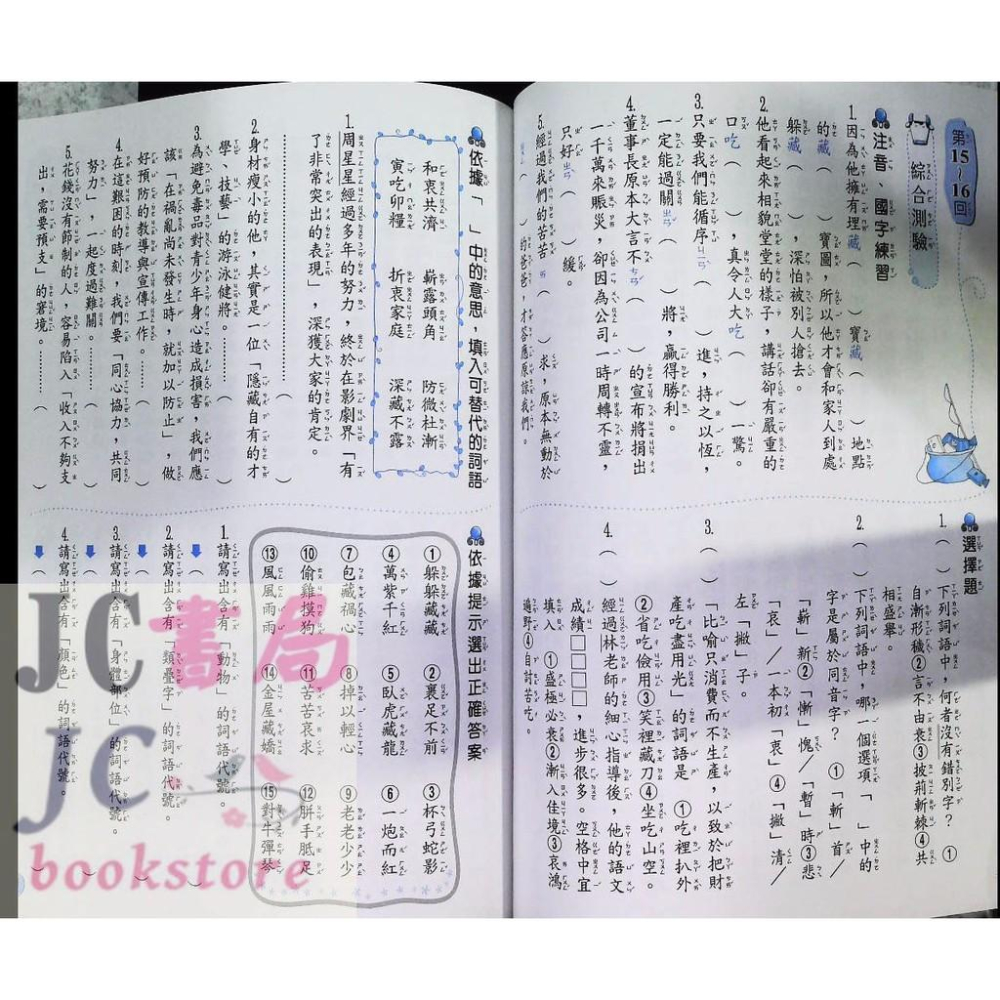 第15~16回
綜合測驗
注音、國字練習
1.因為他擁有埋藏（ ）寶藏（ ）地點
的藏（ ）寶圖，所以他才會和家人到處
躲藏（ ），深怕被別人搶去。
2.他看起來相貌堂堂的樣子，講話卻有嚴重的
口吃（ ），真令人大吃（ ）一驚。
3.只要我們能循序ㄐㄧㄢˋ（ ）進，持之以恆，
一定能過關ㄓㄢˇ（ ）將，贏得勝利。
4.董事長原本大言不ㄘㄢˊ（ ）的宣布將捐出
一千萬來賑災，卻因為公司一時周轉不靈，
只好ㄓㄢˋ（ ）緩。
5.經過我們的苦苦ㄞ（ ）求，原本無動於
（ ）的爸爸，才答應原諒我們。
選擇題
1.（ ）下列詞語中，何者沒有錯別字？①
自漸形穢②言不由衰③披荊斬棘④共
相盛舉。
2.（ ）下列詞語中，哪一個選項「 」中的
字是屬於同音字？①「斬」首／
「嶄」新②「慚」愧／「暫」時③悲
「哀」／一本初「衷」④「撇」清／
左「撇」子。
3.（ ）「比喻只消費而不生產，以致於把財
產吃盡用光」的詞語是①吃裡扒外
②省吃儉用③笑裡藏刀④坐吃山空。
4.（ ）經過林老師的細心指導後，他的語文
成績□□□□，進步很多。空格中宜
填入①盛極必衰②漸入佳境③哀鴻
遍野④自討苦吃。
依據「 」中的意思，填入可替代的詞語
和衷共濟 嶄露頭角 防微杜漸
寅吃卯糧 折衷家庭 深藏不露
1.周星星經過多年的努力，終於在影劇界「有
了非常突出的表現」，深獲大家的肯定。
………（ ）
2.身材瘦小的他，其實是一位「隱藏自有的才
學、技藝」的游泳健將。……（ ）
3.為避免毒品對青少年身心造成損害，我們應
該「在禍亂尚未發生時，就加以防止」，做
好預防的教導與宣傳工作。……（ ）
4.在這艱困的時刻，我們要「同心協力，共同
努力」，一起度過難關。……（ ）
5.花錢沒有節制的人，容易陷入「收入不夠支
出，需要預支」的窘境。……（ ）
依據提示選出正確答案
①躲躲藏藏 ②裹足不前 ③杯弓蛇影
④萬紫千紅 ⑤臥虎藏龍 ⑥一炮而紅
⑦包藏禍心 ⑧掉以輕心 ⑨老老少少
⑩偷雞摸狗 ⑪苦苦哀求 ⑫胼手胝足
⑬風風雨雨 ⑭金屋藏嬌 ⑮對牛彈琴
1.請寫出含有「動物」的詞語代號。
（
2.請寫出含有「類疊字」的詞語代號。
（
3.請寫出含有「身體部位」的詞語代號。
（
4.請寫出含有「顏色」的詞語代號。
（
JC書局
JC
bookstore